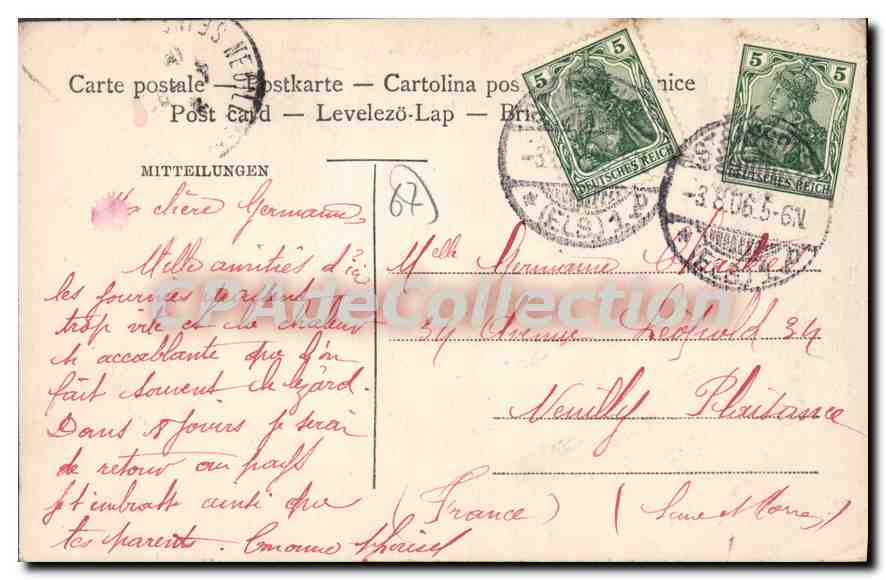 Carte postale — Postkarte — Cartolina pos nice
Post card — Levelezö-Lap — Brie
MITTEILUNGEN
67
Ma chère Germaine
Mille amitiés d'ici
les journées passent
trop vite et la chaleur
si accablante que l'on
fait souvent le lézard.
Dans 8 jours je serai
de retour au pays
Je t'embrasse ainsi que
tes parents.
Melle Germaine
34 Avenue Léopold 34
Neuilly Plaisance
(France) (Seine et Marne)
5 5
DEUTSCHES REICH
5 5
DEUTSCHES REICH
* (ELS) 1 P
-3.8.06.5-6N.
* (ELS) 1 P
NEUILLY
CPAdeCollection